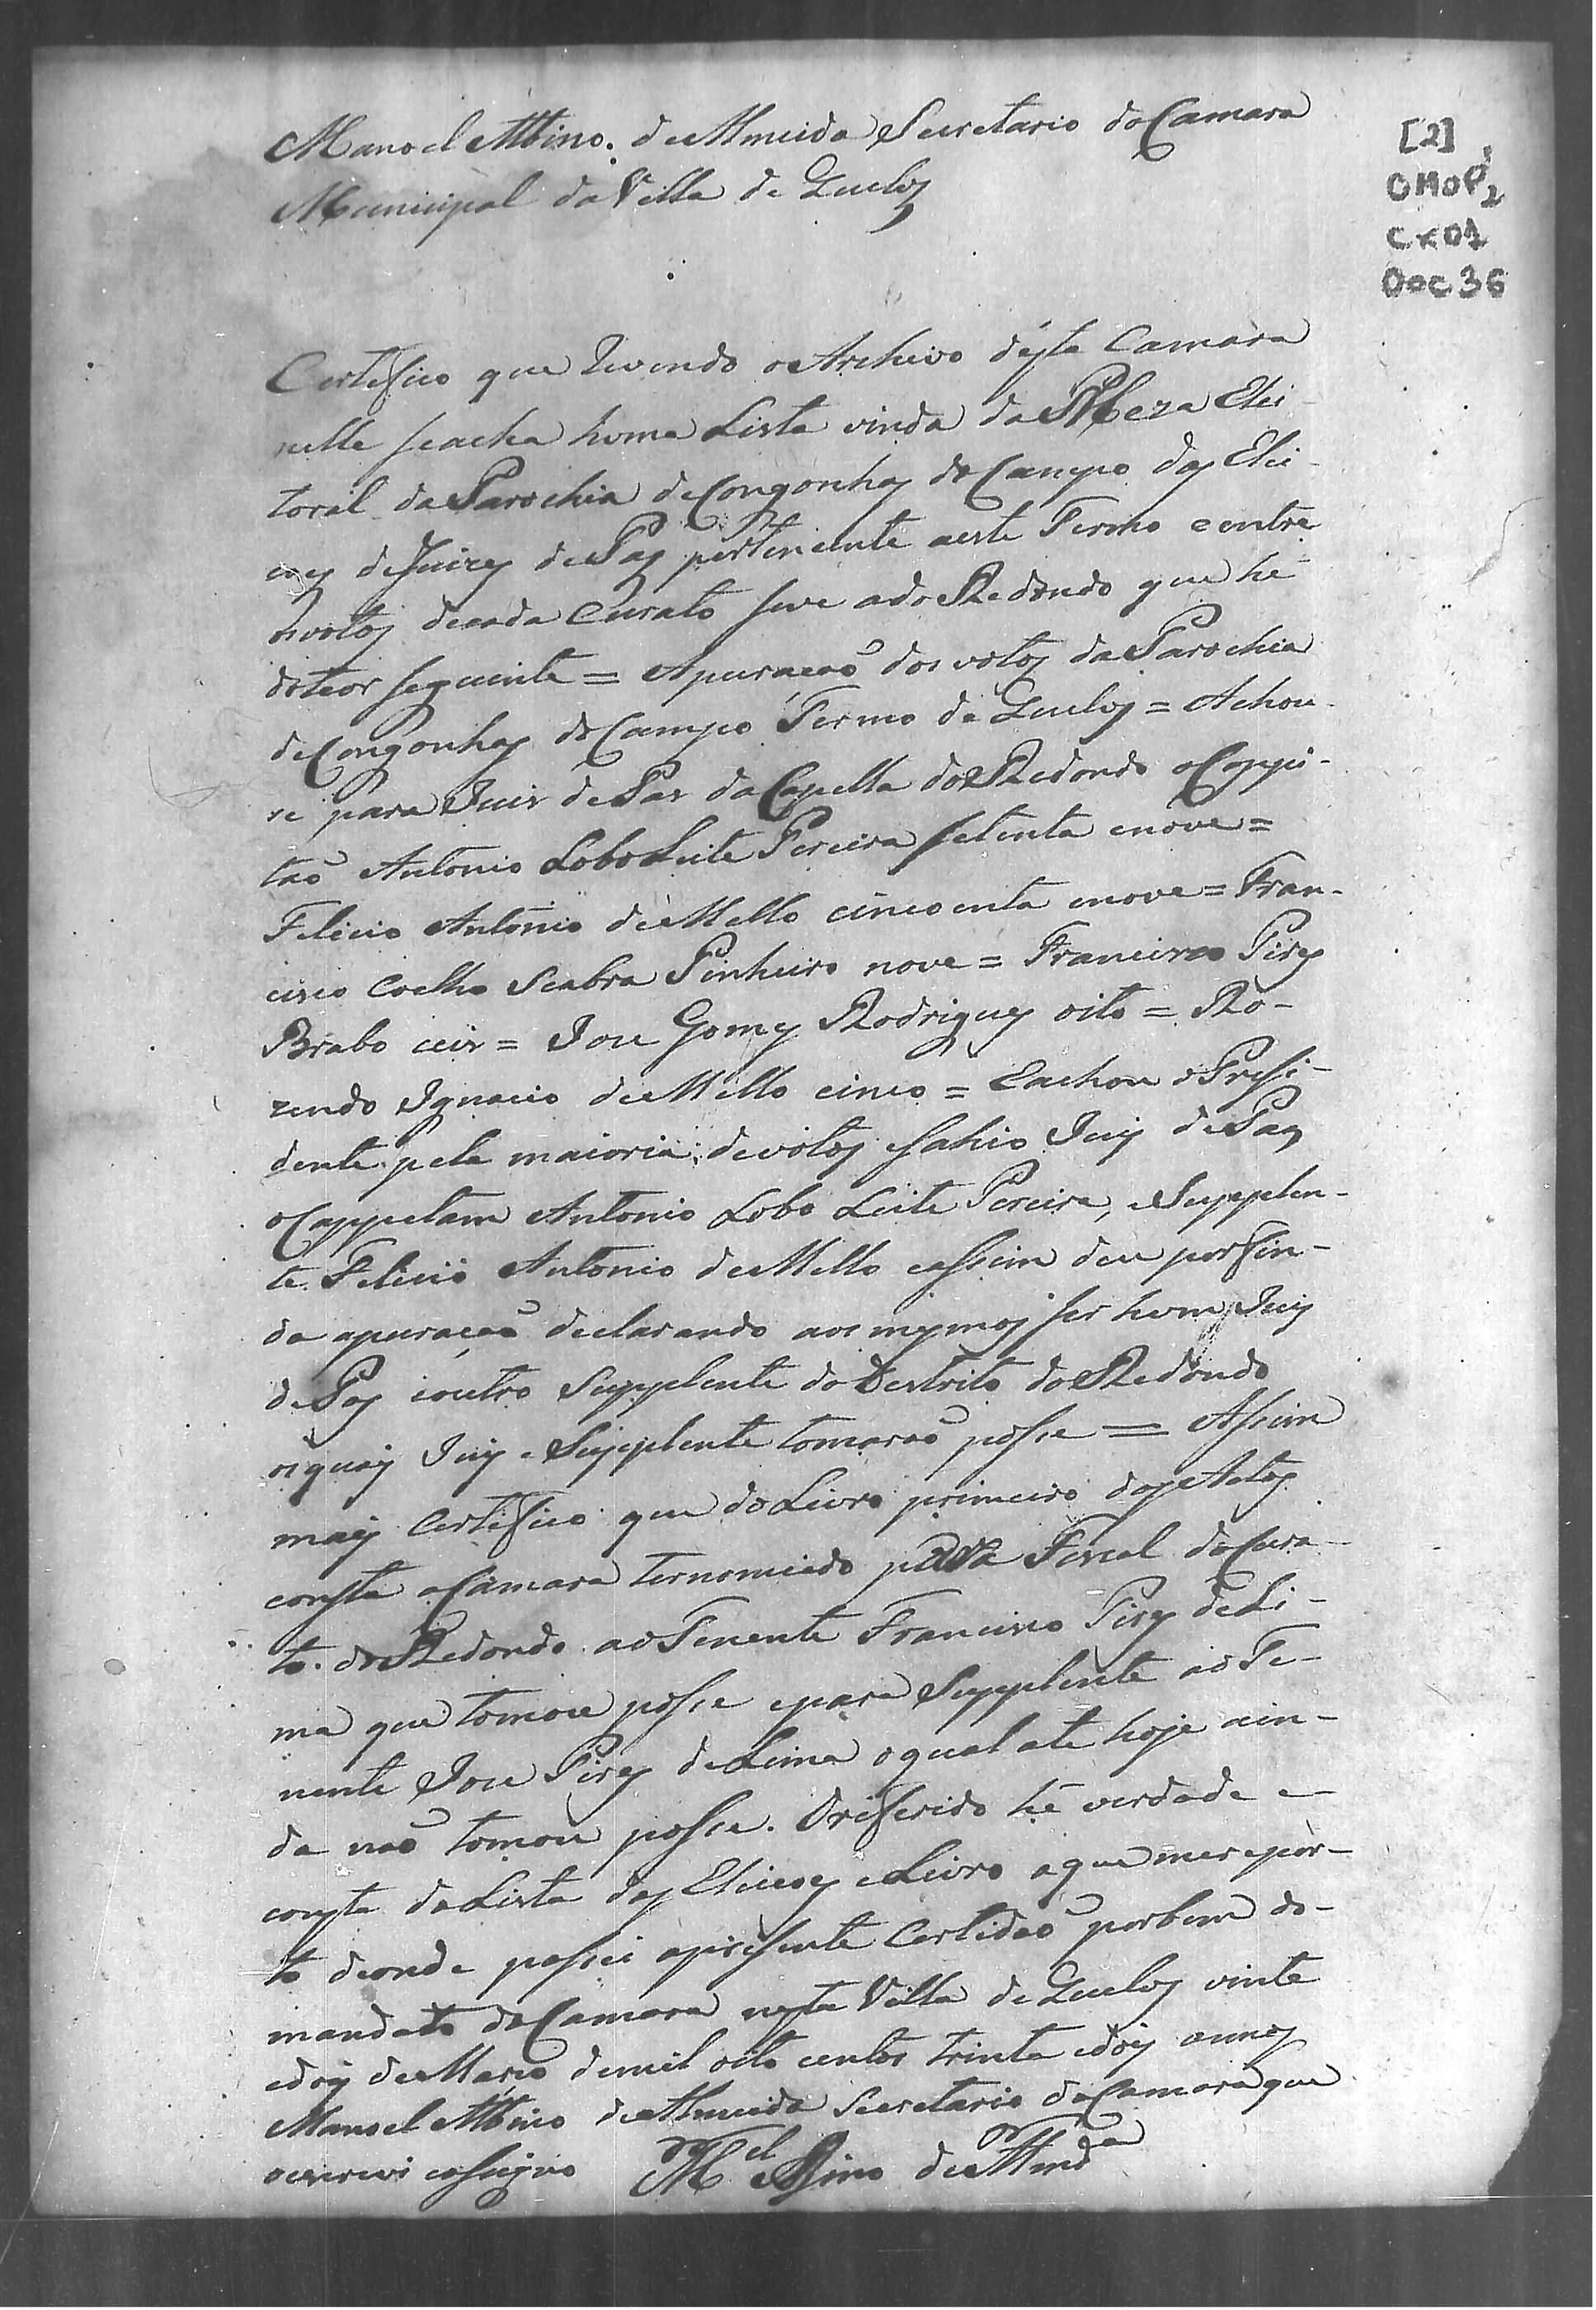 Manoel Albino de Almeida Secretario da Camara
Municipal da Villa de Queluz
[2]
CMOP2
Cx01
Doc 36
Certifico que revendo o Archivo désta Camara
nelle se acha huma Lista vinda da Meza Elei-
toral da Parochia de Congonhas do Campo das Elei-
coes de Juizes de Paz pertencente a este Termo e entre
os votos de cada Curato teve a do Redondo que hé
do teor seguinte = Apuracaõ dos votos da Parochia
de Congonhas do Campo Termo de Queluz = Achou
se para Juis de Pas da Capella do Redondo o Cappi-
taõ Antonio Lobo Leite Pereira setenta e nove =
Felicio Antonio de Mello cincoenta e nove = Fran-
cisco Coelho Seabra Pinheiro nove = Francisco Pires
Brabo ceis = Jose Gomes Rodrigues oito = Ro-
zendo Ignacio de Mello cinco = E achou o Presi-
dente pela maioria de votos e sahio Juiz de Paz
o Cappetam Antonio Lobo Leite Pereira, e Supplen-
te Felicio Antonio de Mello e assim deu por fin-
da apuraçaõ declarando aos mesmos ser hum Juiz
de Paz e outro Supplente do Destrito do Redondo
os quais Juiz e Supplente tomaraõ posse = Assim
mais Certifico que do Livro primeiro das Actas
consta a Camara ter nomiado para Fiscal do Cura-
to do Redondo ao Tenente Francisco Pires de Li-
ma que tomou posse e para Supplente ao Te-
nente Jose Pires de Lima o qual ate hoje ain-
da naõ tomou posse. O referido hé verdade e
consta da Lista das Eleicoes e Livro a que me repor-
to de onde passei a presente Certidaõ por bem do
mandato da Camara nesta Villa de Queluz vinte
e dois de Março de mil oito centos trinta e dois annos
Manoel Albino de Almeida Secretario da Camara que
o escrevi e assigno Mel Albino de Almda